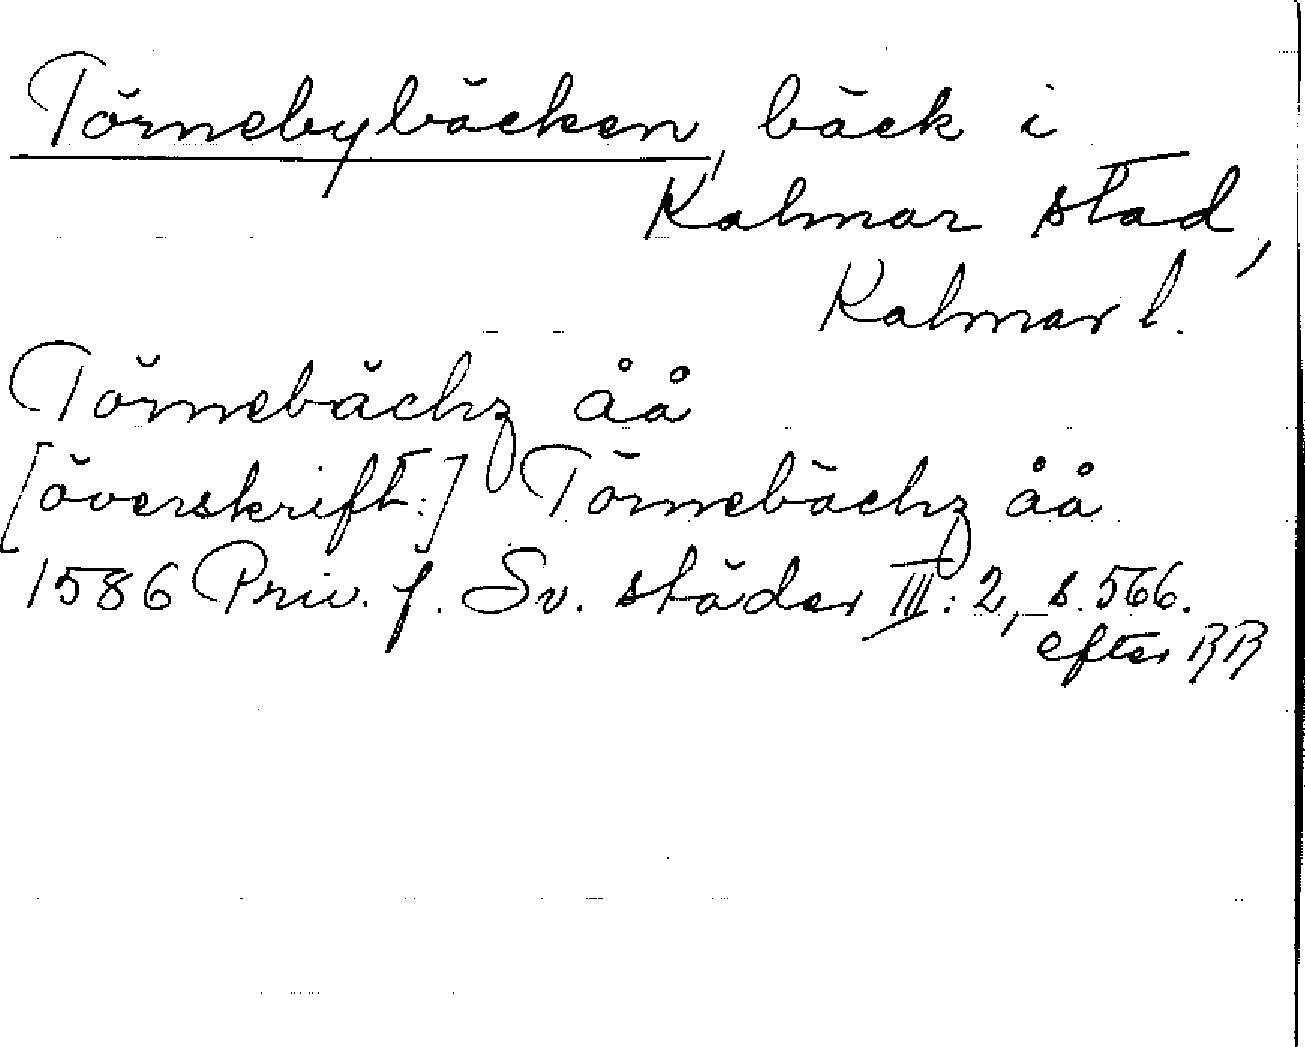 Törnebybäcken, bäck i
Kalmar stad,
Kalmar l.
Törnebächz åå
[överskrift:] Törnebächz åå
1586 Priv. f. Sv. städer III: 2, s. 566.
efter RR